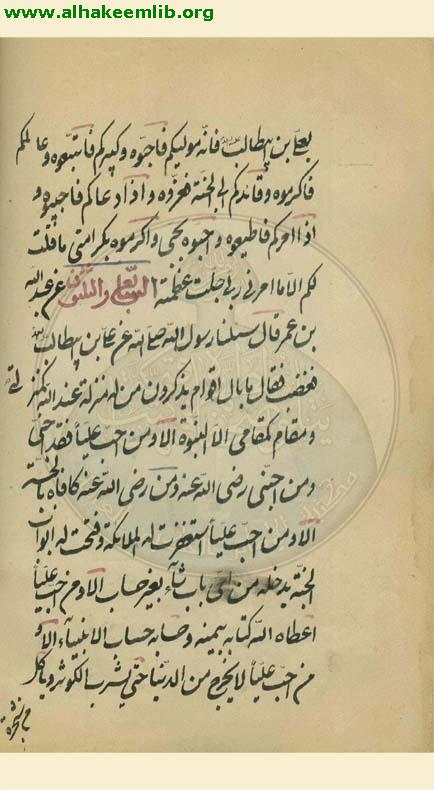 www.alhakeemlib.org
بعلي بن ابيطالب فانه موليكم فاحبوه وكبيركم فاتبعوه وعالمكم
فاكرموه وقائدكم الى الجنة فعزّزوه واذا دعاكم فاجيبوه و
اذا امركم فاطيعوه واحبوه بحبي واكرموه بكرامتي ما قلت
لكم الا ما امرني ربي جلت عظمته عن عبد الله
بن عمر قال سئلنا رسول الله صلى الله عن علي بن ابيطالب
فغضب فقال ما بال اقوام يذكرون من له منزلة عند الله كمنزلتي
ومقام كمقامي الا النبوة الا ومن احب علياً فقد احبني
ومن احبني رضي الله عنه ومن رضي الله عنه كافاه بالجنة
الا ومن احب علياً استغفرت له الملائكة وفتحت له ابواب
الجنة يدخله من اي باب شاء بغير حساب الا ومن احب علياً
اعطاه الله كتابه بيمينه وحسابه حساب الانبياء الا و
من احب علياً لا يخرج من الدنيا حتى يشرب الكوثر وياكل
من شجرة